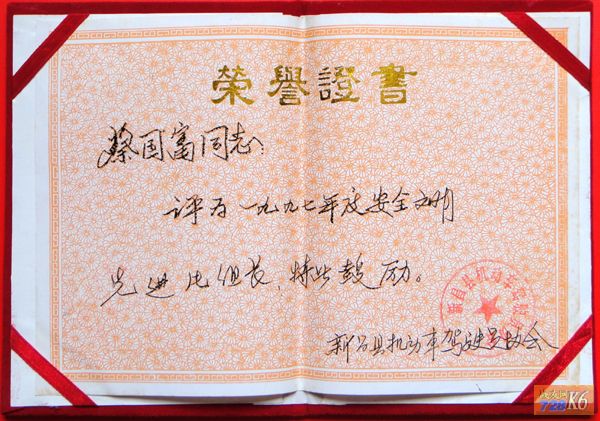 荣誉證書
蔡国富同志:
评为一九九七年度安全文明
先进 组长,特此鼓励。
新昌县机动车驾驶员协会
新昌县机动车驾驶员
战友网
728K6